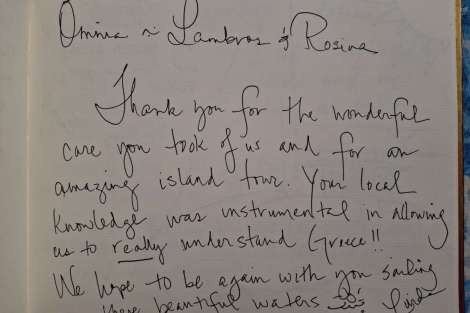 Omnia ~ Lambros & Rosina
Thank you for the wonderful
care you took of us and for an
amazing island tour. Your local
knowledge was instrumental in allowing
us to really understand Greece!!
We hope to be again with you sailing
these beautiful waters